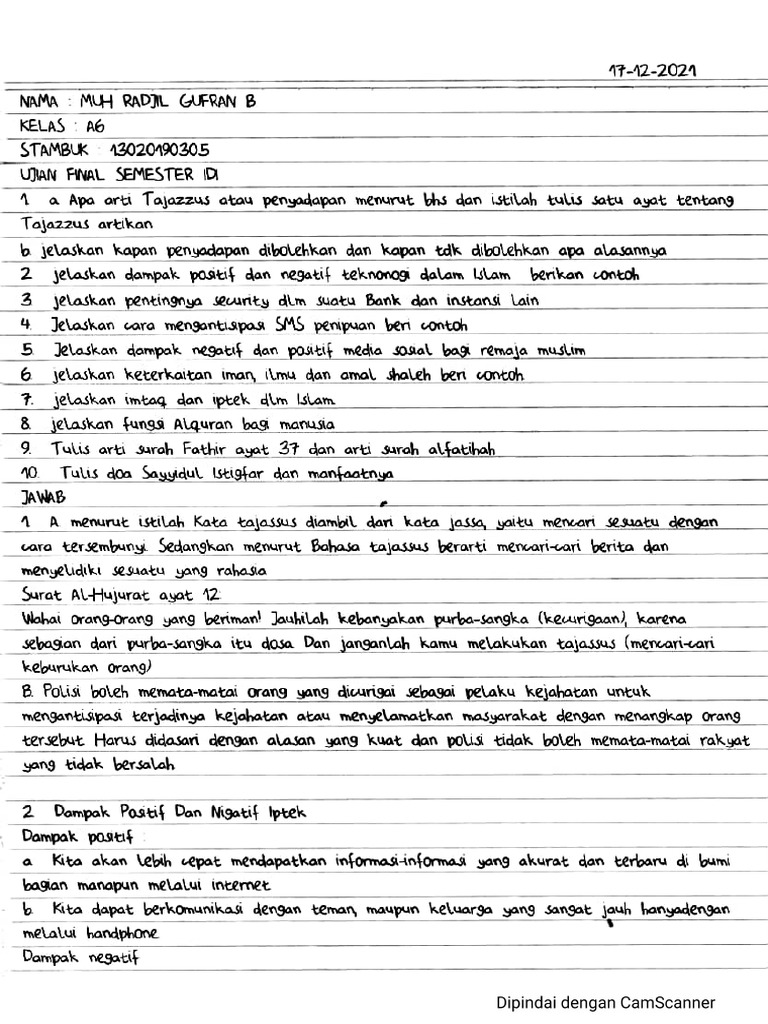 17-12-2021
NAMA : MUH RADJIL GUFRAN B
KELAS : A6
STAMBUK : 13020190305
UJIAN FINAL SEMESTER IDI
1 a Apa arti Tajazzus atau penyadapan menurut bhs dan istilah tulis satu ayat tentang
Tajazzus artikan
b. jelaskan kapan penyadapan dibolehkan dan kapan tdk dibolehkan apa alasannya
2 jelaskan dampak positif dan negatif teknonogi dalam Islam berikan contoh
3 jelaskan pentingnya security dlm suatu Bank dan instansi lain
4. Jelaskan cara mengantisipasi SMS penipuan beri contoh
5. Jelaskan dampak negatif dan positif media sosial bagi remaja muslim
6. jelaskan keterkaitan iman, ilmu dan amal shaleh beri contoh
7. jelaskan imtaq dan iptek dlm Islam
8. jelaskan fungsi Alquran bagi manusia
9. Tulis arti surah Fathir ayat 37 dan arti surah alfatihah
10. Tulis doa Sayyidul Istigfar dan manfaatnya
JAWAB
1 A menurut istilah Kata tajassus diambil dari kata jassa, yaitu mencari sesuatu dengan
cara tersembunyi. Sedangkan menurut Bahasa tajassus berarti mencari-cari berita dan
menyelidiki sesuatu yang rahasia
Surat Al-Hujurat ayat 12
Wahai orang-orang yang beriman! Jauhilah kebanyakan purba-sangka (kecurigaan), karena
sebagian dari purba-sangka itu dosa Dan janganlah kamu melakukan tajassus (mencari-cari
keburukan orang)
B. Polisi boleh memata-matai orang yang dicurigai sebagai pelaku kejahatan untuk
mengantisipasi terjadinya kejahatan atau menyelamatkan masyarakat dengan menangkap orang
tersebut Harus didasari dengan alasan yang kuat dan polisi tidak boleh memata-matai rakyat
yang tidak bersalah
2 Dampak Positif Dan Nigatif Iptek
Dampak positif :
a Kita akan lebih cepat mendapatkan informasi-informasi yang akurat dan terbaru di bumi
bagian manapun melalui internet
b. Kita dapat berkomunikasi dengan teman, maupun keluarga yang sangat jauh hanyadengan
melalui handphone
Dampak negatif
Dipindai dengan CamScanner